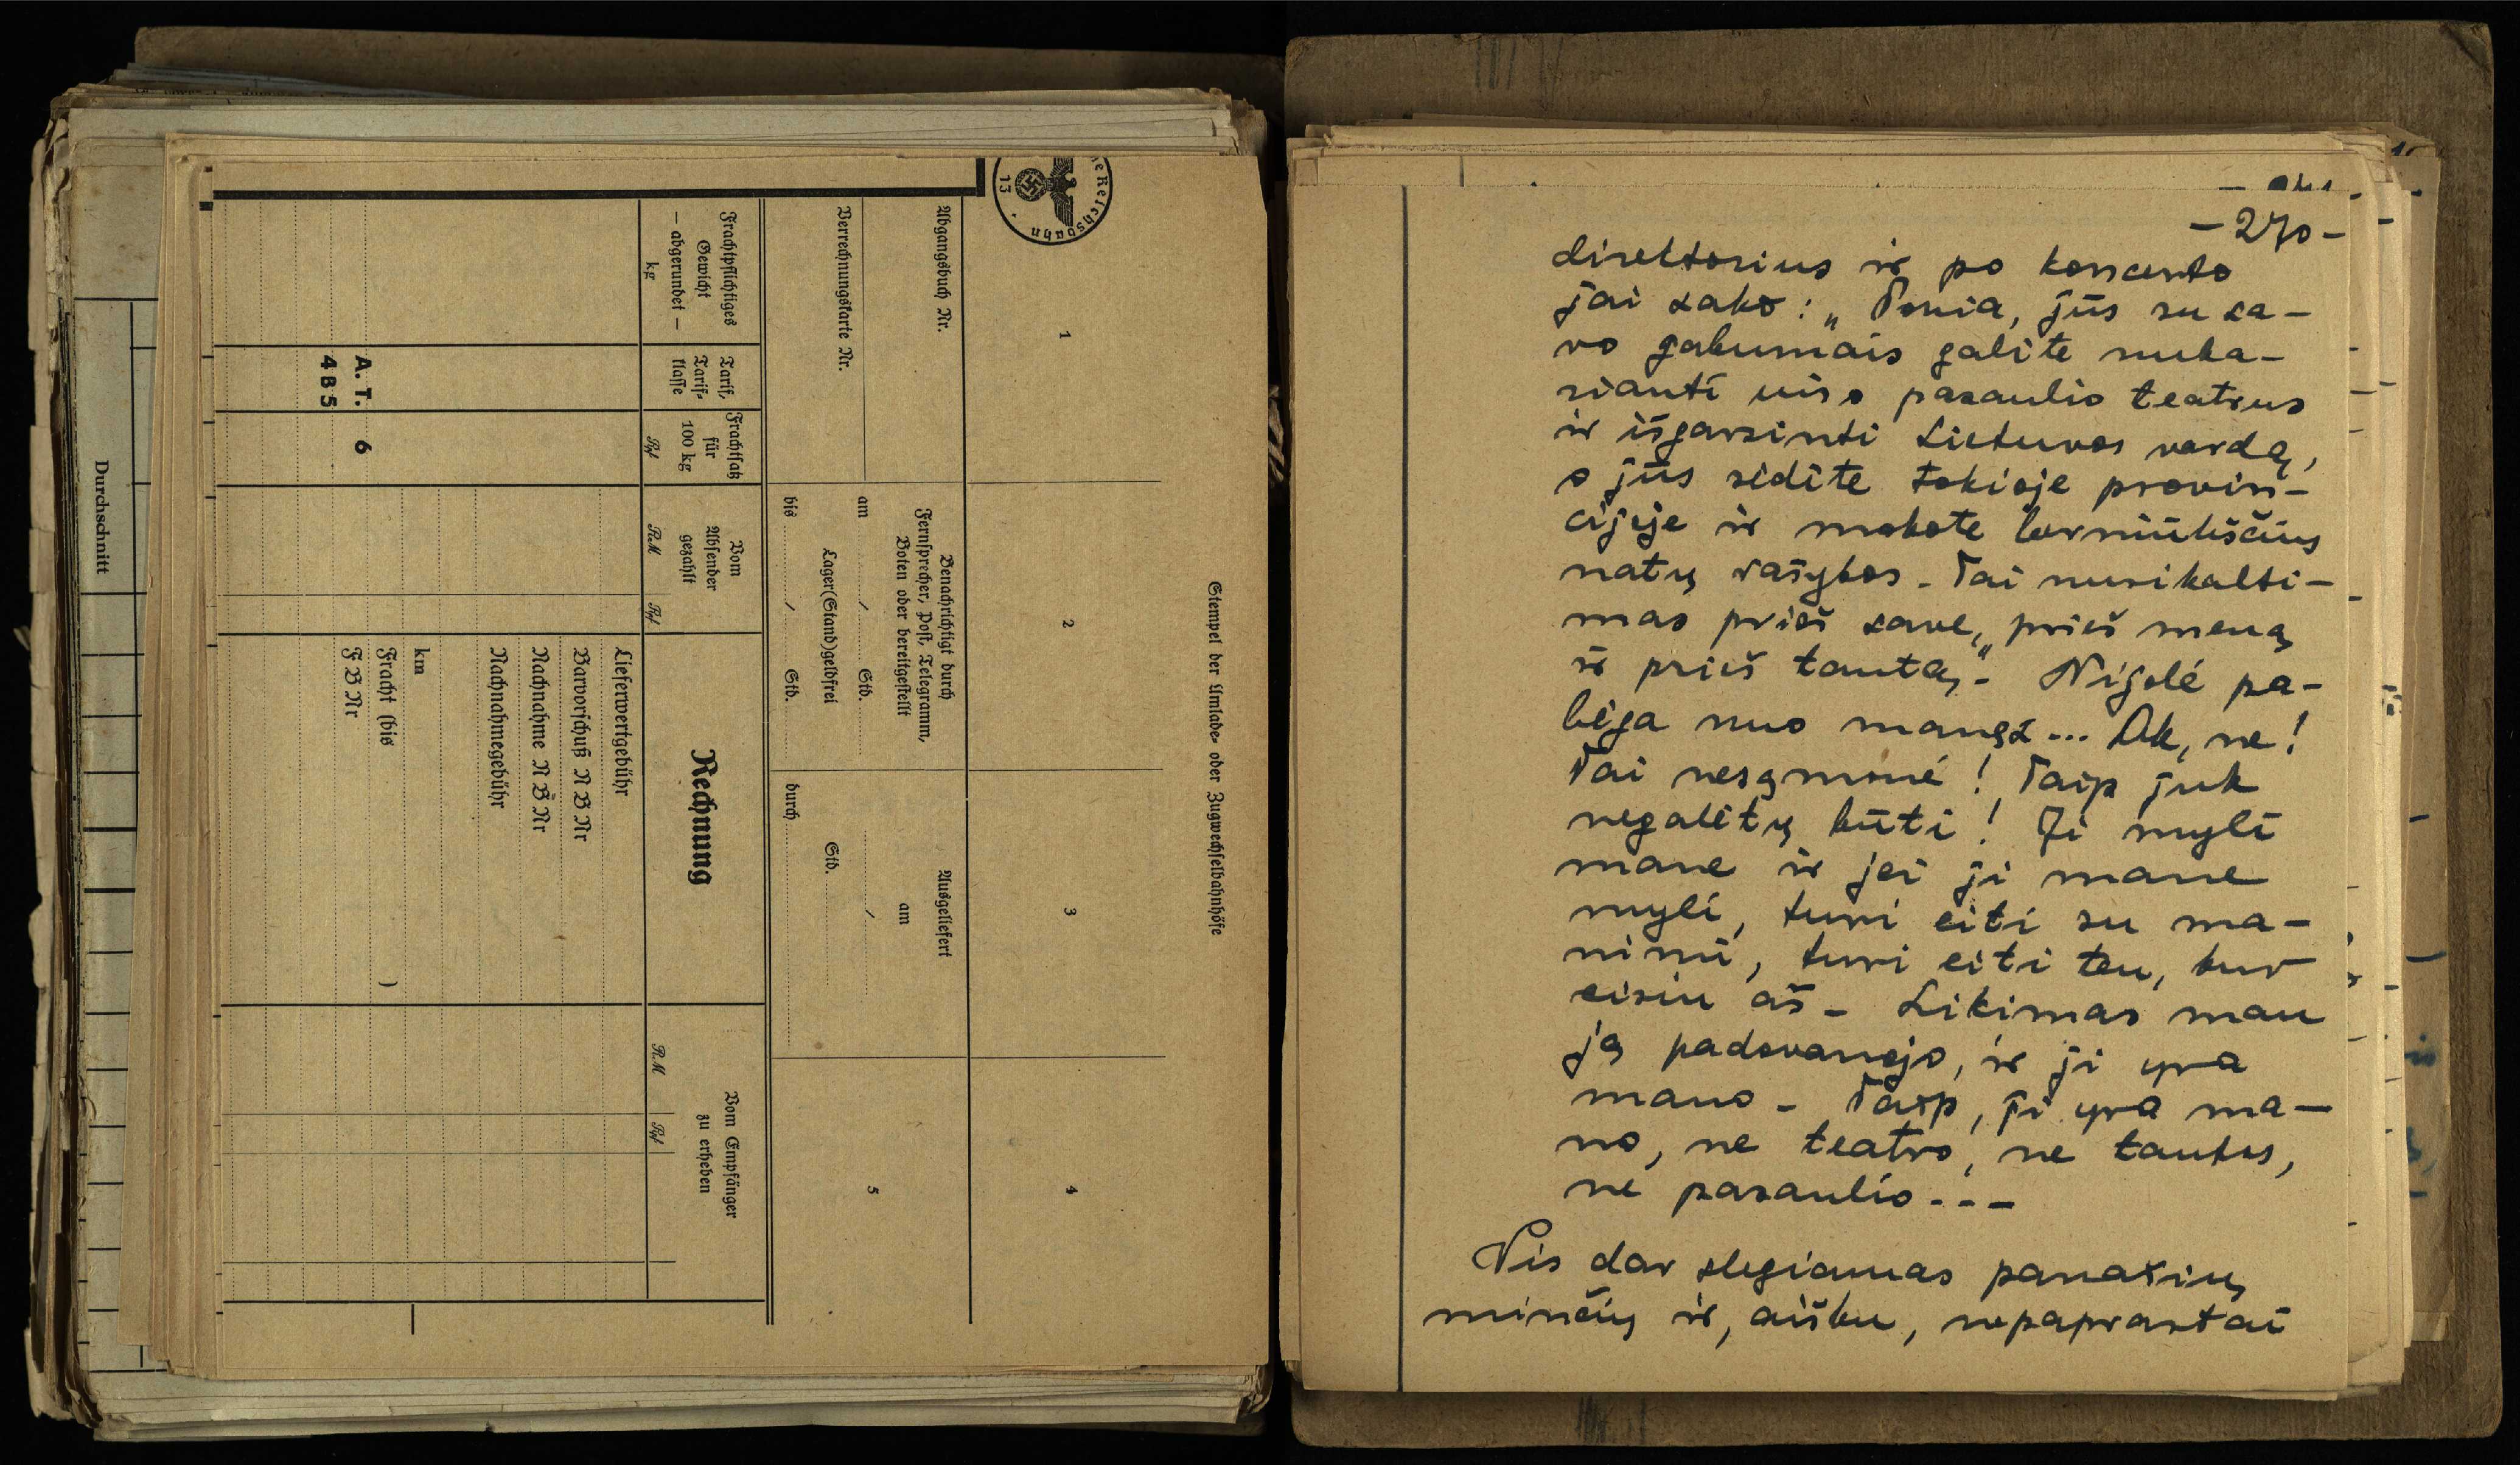 Durchschnitt
Stempel der Umlade- oder Zugwechselbahnhöfe
1
2
3
4
13
Abgangsbuch Nr.
Verrechnungskarte Nr.
Benachrichtigt durch
Fernsprecher, Post, Telegramm,
Boten oder bereitgestellt
am / Std.
Lager(Stand)geldfrei
bis / Std.
Ausgeliefert
am
/
Std.
durch
5
Frachtpflichtiges
Gewicht
— abgerundet —
kg
Tarif,
Tarif-
klasse
Frachtsatz
für
100 kg
Rpf
Vom
Absender
gezahlt
RM Rpf
Rechnung
Vom Empfänger
zu erheben
RM Rpf
Lieferwertgebühr
Barvorschuß N B Nr
Nachnahme N B Nr
Nachnahmegebühr
km
Fracht (bis )
F B Nr
A. T. 6
4 B 5
- 270 -
direktorius ir po koncerto
jai sako: „Ponia, jūs su sa-
vo gabumais galite nuka-
riauti viso pasaulio teatrus
ir išgarsinti Lietuvos vardą,
o jūs sėdite tokioje provin-
cijoje ir mokote berniūkščius
natų rašybos. Tai nusikalti-
mas prieš save, prieš meną
ir prieš tautą." Nijolė pa-
bėga nuo manęs... Ak, ne!
Tai nesąmonė! Taip juk
negalėtų būti! Ji myli
mane ir jei ji mane
myli, turi eiti su ma-
nimi, turi eiti ten, kur
eisiu aš. Likimas man
ją padovanojo, ir ji yra
mano. Taip, ji yra ma-
no, ne teatro, ne tautos,
ne pasaulio...
Vis dar slegiamas panašių
minčių ir, aišku, nepaprastai